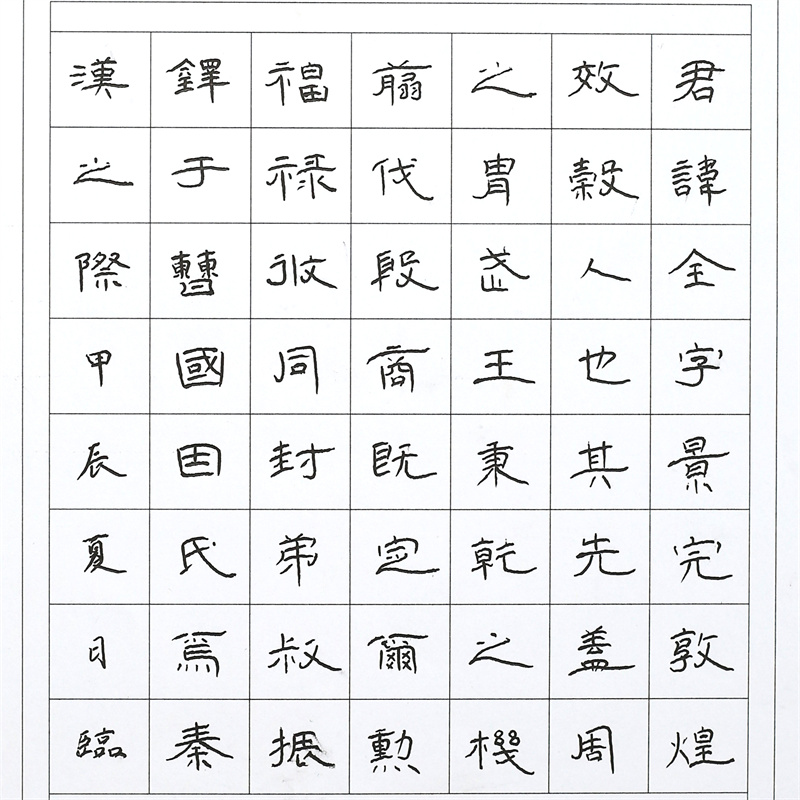 君諱全字景完敦煌
效穀人也其先蓋周
之胄武王秉乾之機
翦伐殷商既定爾勳
福祿攸同封弟叔振
鐸于曹國因氏焉秦
漢之際甲辰夏日臨